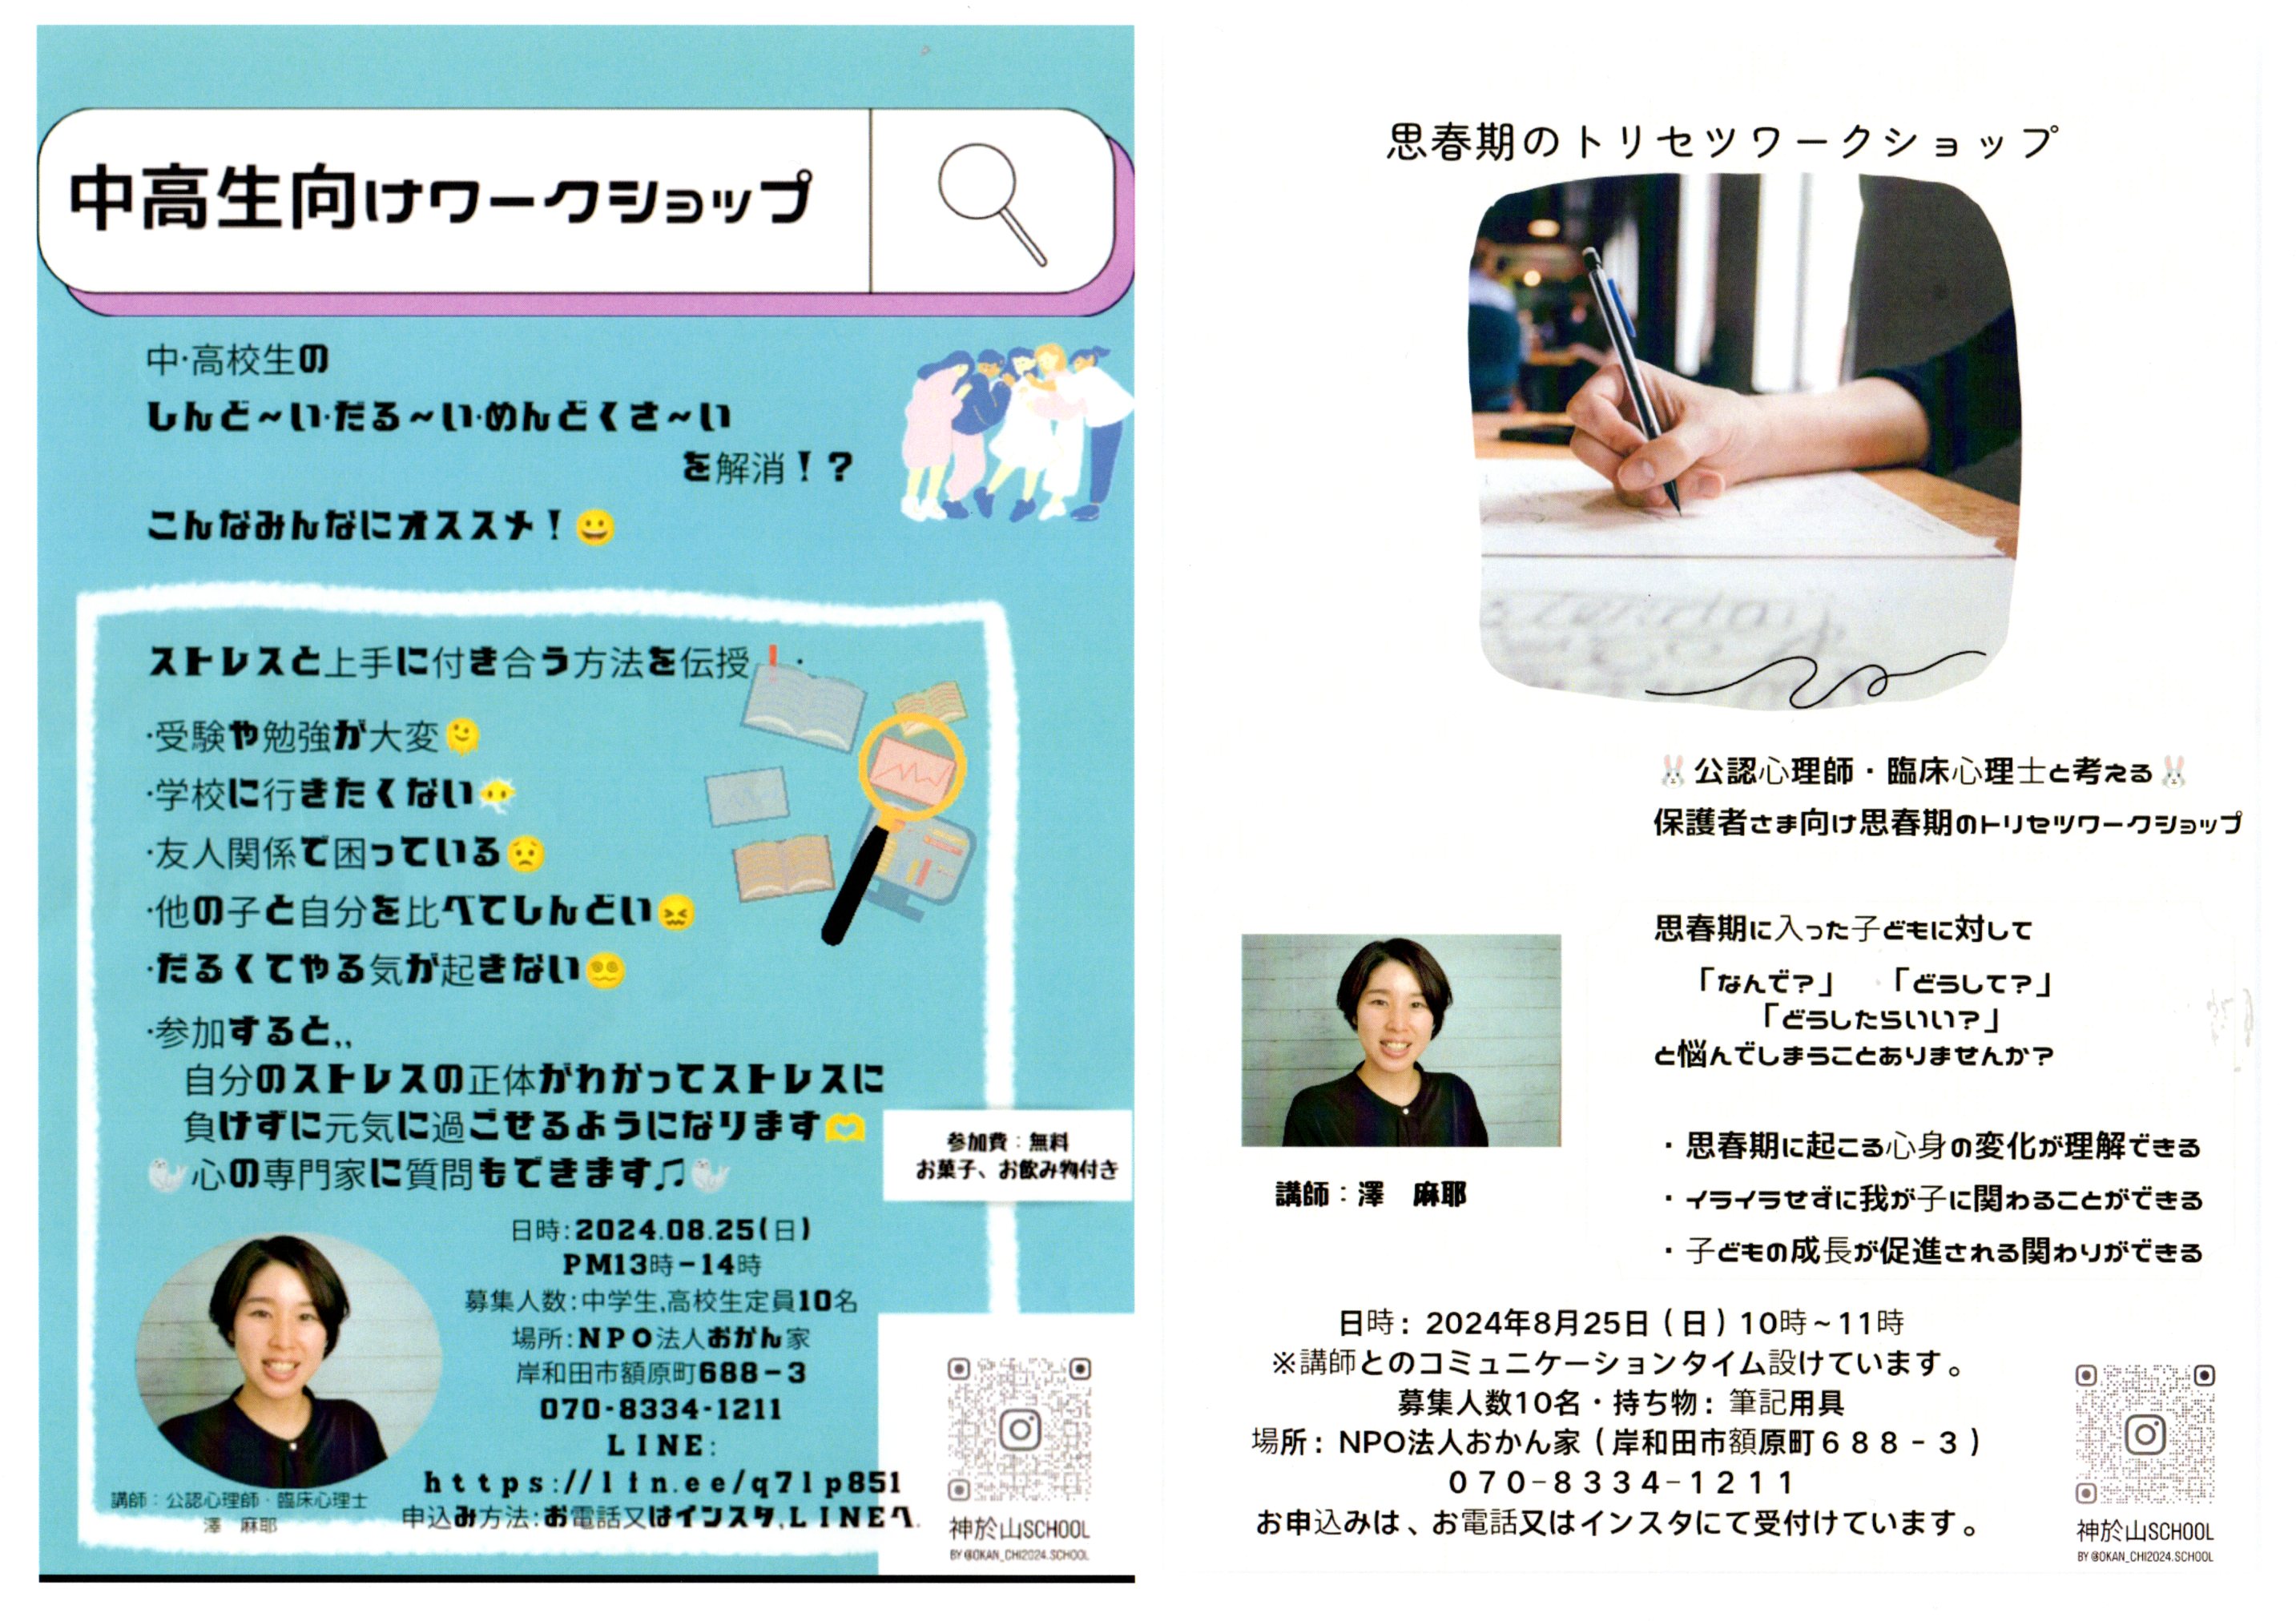 中高生向けワークショップ
中・高校生の
しんど～い・だる～い・めんどくさ～い
を解消！？
こんなみんなにオススメ！😀
ストレスと上手に付き合う方法を伝授❗
・受験や勉強が大変🫠
・学校に行きたくない😶‍🌫️
・友人関係で困っている😟
・他の子と自分を比べてしんどい😖
・だるくてやる気が起きない😵‍💫
・参加すると,,
自分のストレスの正体がわかってストレスに
負けずに元気に過ごせるようになります🫶
🦭心の専門家に質問もできます♫🦭
参加費：無料
お菓子、お飲み物付き
日時：2024.08.25(日)
PM13時－14時
募集人数：中学生,高校生定員10名
場所：NPO法人おかん家
岸和田市額原町688－3
070-8334-1211
LINE：
https://lin.ee/q7lp85l
申込み方法：お電話又はインスタ,LINEへ.
講師：公認心理師・臨床心理士
澤　麻耶
神於山SCHOOL
BY @OKAN_CHI2024.SCHOOL
思春期のトリセツワークショップ
🐰公認心理師・臨床心理士と考える🐰
保護者さま向け思春期のトリセツワークショップ
思春期に入った子どもに対して
「なんで？」　「どうして？」
「どうしたらいい？」
と悩んでしまうことありませんか？
・思春期に起こる心身の変化が理解できる
・イライラせずに我が子に関わることができる
・子どもの成長が促進される関わりができる
講師：澤　麻耶
日時：2024年8月25日（日）10時～11時
※講師とのコミュニケーションタイム設けています。
募集人数10名・持ち物：筆記用具
場所：NPO法人おかん家（岸和田市額原町６８８－３）
０７０－８３３４－１２１１
お申込みは、お電話又はインスタにて受付けています。
神於山SCHOOL
BY @OKAN_CHI2024.SCHOOL